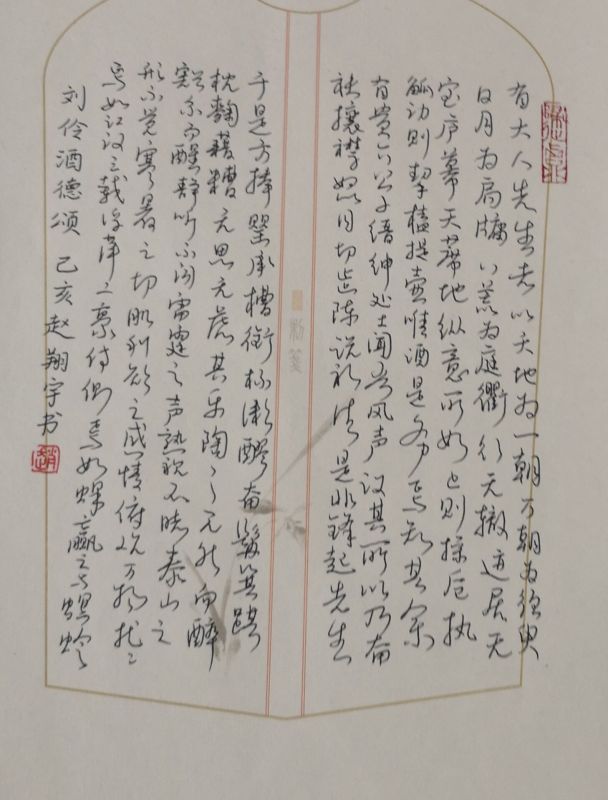 有大人先生者以天地为一朝万朝为须臾
日月为扃牖八荒为庭衢行无辙迹居无
室庐幕天席地纵意所如止则操卮执
觚动则挈榼提壶唯酒是务焉知其余
有贵介公子缙绅处士闻吾风声议其所以乃奋
袂攘襟怒目切齿陈说礼法是非锋起先生
于是方捧罂承槽衔杯漱醪奋髯箕踞
枕麴藉糟无思无虑其乐陶〻兀然而醉
豁尔而醒静听不闻雷霆之声熟视不睹泰山之
形不觉寒暑之切肌利欲之感情俯观万物扰〻
焉如江汉之载浮萍二豪侍侧焉如蜾蠃之与螟蛉
刘伶酒德颂 己亥赵翔宇书